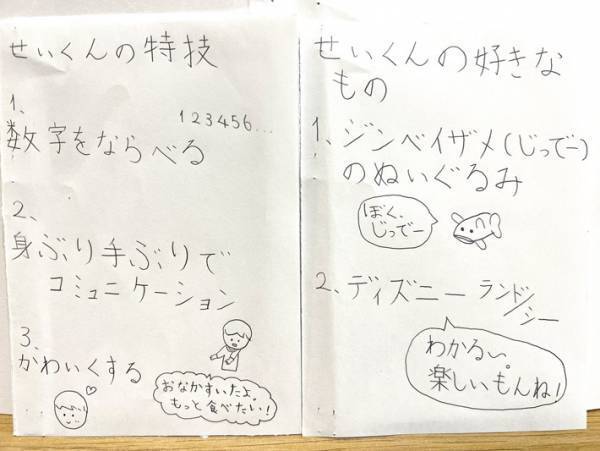 せいくんの特技
1、
123456...
数字をならべる
2、
身ぶり手ぶりで
コミュニケーション
3、
かわいくする
おなかすいたよ。
もっと食べたい!
せいくんの好きな
もの
1、ジンベイザメ(じってー)
のぬいぐるみ
ぼく、
じってー
2、ディズニーランド/
シー
わかるぅ〜。
楽しいもんね!